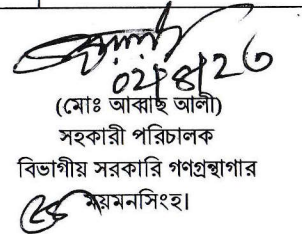 ০২/৪/২৩
(মোঃ আব্বাছ আলী)
সহকারী পরিচালক
বিভাগীয় সরকারি গণগ্রন্থাগার
ময়মনসিংহ।